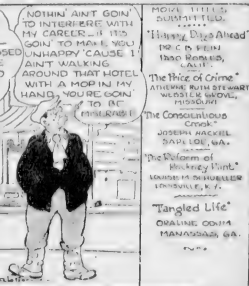 OSED
NOTHIN' AIN'T GOIN'
TO INTERFERE WITH
MY CAREER__ IF IT'S
GOIN' TO MAKE YOU
UNHAPPY 'CAUSE I
AIN'T WALKING
AROUND THAT HOTEL
WITH A MOP IN MY
HAND, YOU'RE GOIN'
TO BE
MISERABLE
MORE TITLES
SUBMITTED.
"Happy Days Ahead"
DR C B FEIN
PASO ROBLES,
CALIF.
"The Price of Crime"
RUTH STEWART
WEBSTER GROVE,
MISSOURI
"The Conscientious
Crook"
JOSEPH HACKEL
SAPELOE, GA.
"The Reform of
Hackney Flint"
LOUISE M. SCHUELLER
LOUISVILLE, KY.
"Tangled Life"
ORALINE ODUM
MANASSAS, GA.